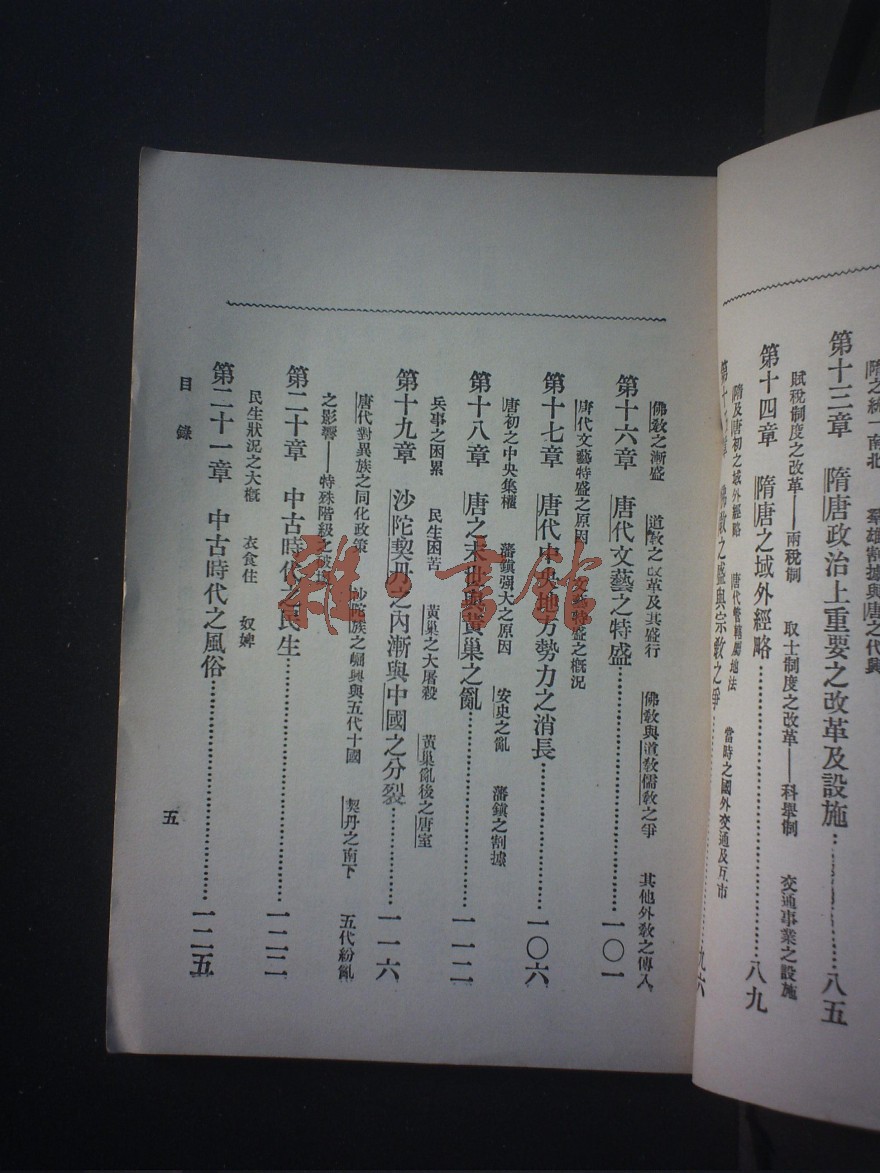 隋之統一南北　羣雄割據與唐之代興
第十三章　隋唐政治上重要之改革及設施…………八五
賦稅制度之改革——兩稅制　取士制度之改革——科舉制　交通事業之設施
第十四章　隋唐之域外經略…………八九
隋及唐初之域外經略　唐代管轄屬地法　當時之國外交通及互市
第十五章　佛敎之盛與宗敎之爭…………九六
佛敎之漸盛　道敎之改革及其盛行　佛敎與道敎儒敎之爭　其他外敎之傳入
第十六章　唐代文藝之特盛…………一〇一
唐代文藝特盛之原因　文藝特盛之概況
第十七章　唐代中央地方勢力之消長…………一〇六
唐初之中央集權　藩鎭强大之原因　安史之亂　藩鎭之割據
第十八章　唐之末世與黃巢之亂…………一一二
兵事之困累　民生困苦　黃巢之大屠殺　黃巢亂後之唐室
第十九章　沙陀契丹之內漸與中國之分裂…………一一六
唐代對異族之同化政策　沙陀族之崛興與五代十國　契丹之南下　五代紛亂
之影響——特殊階級之破壞
第二十章　中古時代之民生…………一二二
民生狀況之大概　衣食住　奴婢
第二十一章　中古時代之風俗…………一二五
目錄
五
雜·書館